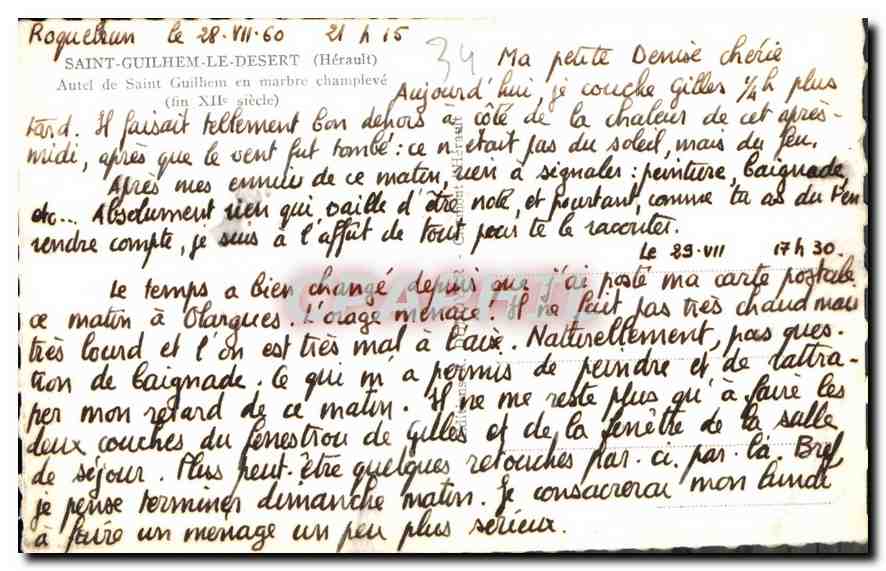 Roquebrun le 28-VII-60 21 h 15
34
SAINT-GUILHEM-LE-DESERT (Hérault)
Autel de Saint Guilhem en marbre champlevé
(fin XIIe siècle)
Ma petite Denise chérie
Aujourd'hui, je couche Gilles 1/4 h plus
tard. Il faisait tellement bon dehors à côté de la chaleur de cet après-
midi, après que le vent fut tombé : ce n'était pas du soleil, mais du feu.
Après mes ennuis de ce matin, rien à signaler : peinture, baignade,
etc... Absolument rien qui vaille d'être noté, et pourtant, comme tu as du t'en
rendre compte, je suis à l'affût de tout pour te le raconter.
Le 29-VII 17 h 30.
Le temps a bien changé depuis que j'ai posté ma carte postale
ce matin à Olargues. L'orage menace. Il ne fait pas très chaud mais
très lourd et l'on est très mal à l'aise. Naturellement, pas ques-
tion de baignade. Ce qui m'a permis de peindre et de rattra-
per mon retard de ce matin. Il ne me reste plus qu'à faire les
deux couches du fenestrou de Gilles et de la fenêtre de la salle
de séjour. Plus peut-être quelques retouches par-ci par-là. Bref,
je pense terminer dimanche matin. Je consacrerai mon lundi
à faire un ménage un peu plus sérieux.
CPAPHIL